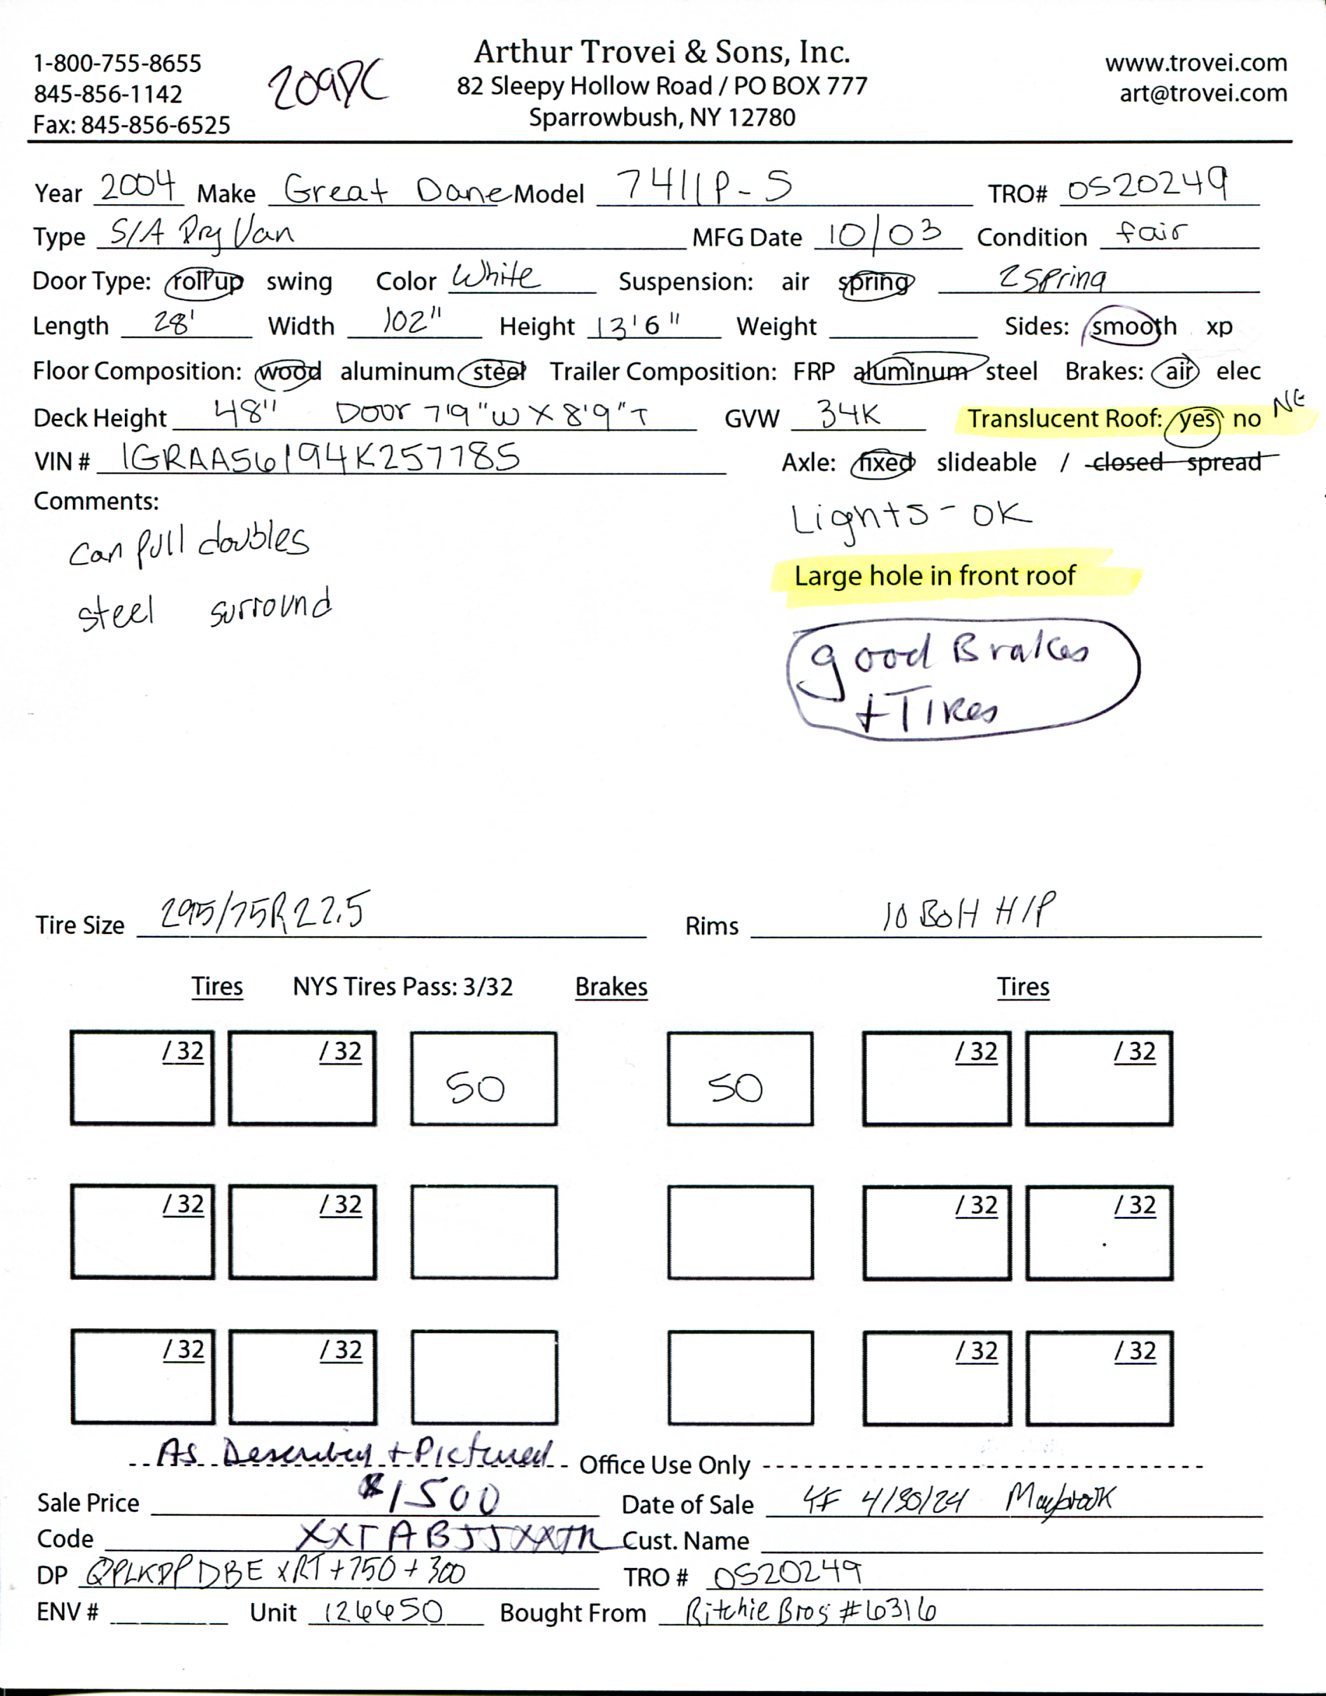 1-800-755-8655
845-856-1142
Fax: 845-856-6525
209DC
Arthur Trovei & Sons, Inc.
82 Sleepy Hollow Road / PO BOX 777
Sparrowbush, NY 12780
www.trovei.com
art@trovei.com
Year 2004 Make Great Dane Model 7411P-S TRO# 0S20249
Type S/A Dry Van MFG Date 10/03 Condition fair
Door Type: rollup swing Color White Suspension: air spring 2 spring
Length 28' Width 102" Height 13'6" Weight Sides: smooth xp
Floor Composition: wood aluminum steel Trailer Composition: FRP aluminum steel Brakes: air elec
Deck Height 48" Door 7'9"W X 8'9"T GVW 34K Translucent Roof: yes no NG
VIN # 1GRAA56194K257785 Axle: fixed slideable / closed spread
Comments:
Lights - OK
can pull doubles
Large hole in front roof
steel surround
good Brakes
+ Tires
Tire Size 295/75R22.5 Rims 10 BoH H/P
Tires NYS Tires Pass: 3/32 Brakes Tires
/32 /32 50 50 /32 /32
/32 /32 /32 /32
/32 /32 /32 /32
As Described + Pictured Office Use Only
Sale Price $1500 Date of Sale 4/30/24 Maybrook
Code Cust. Name
DP QPLKDP DBE XRT +750 + 300 TRO # 0S20249
ENV # Unit 126650 Bought From Ritchie Bros #6316